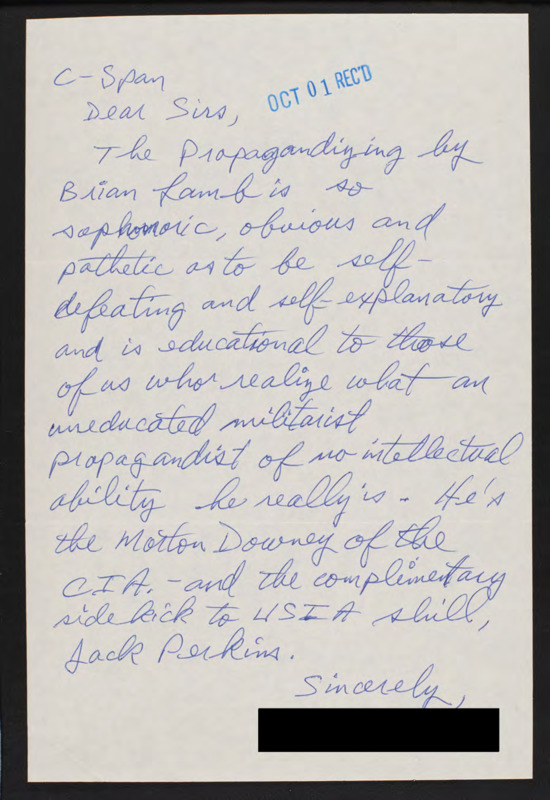 C-Span
OCT 01 REC'D
Dear Sirs,
The Propagandizing by
Brian Lamb is so
sophomoric, obvious and
pathetic as to be self-
defeating and self-explanatory
and is educational to those
of us who realize what an
uneducated militarist
propagandist of no intellectual
ability he really is - He's
the Morton Downey of the
C.I.A. - and the complimentary
side kick to USIA shill,
Jack Perkins.
Sincerely,